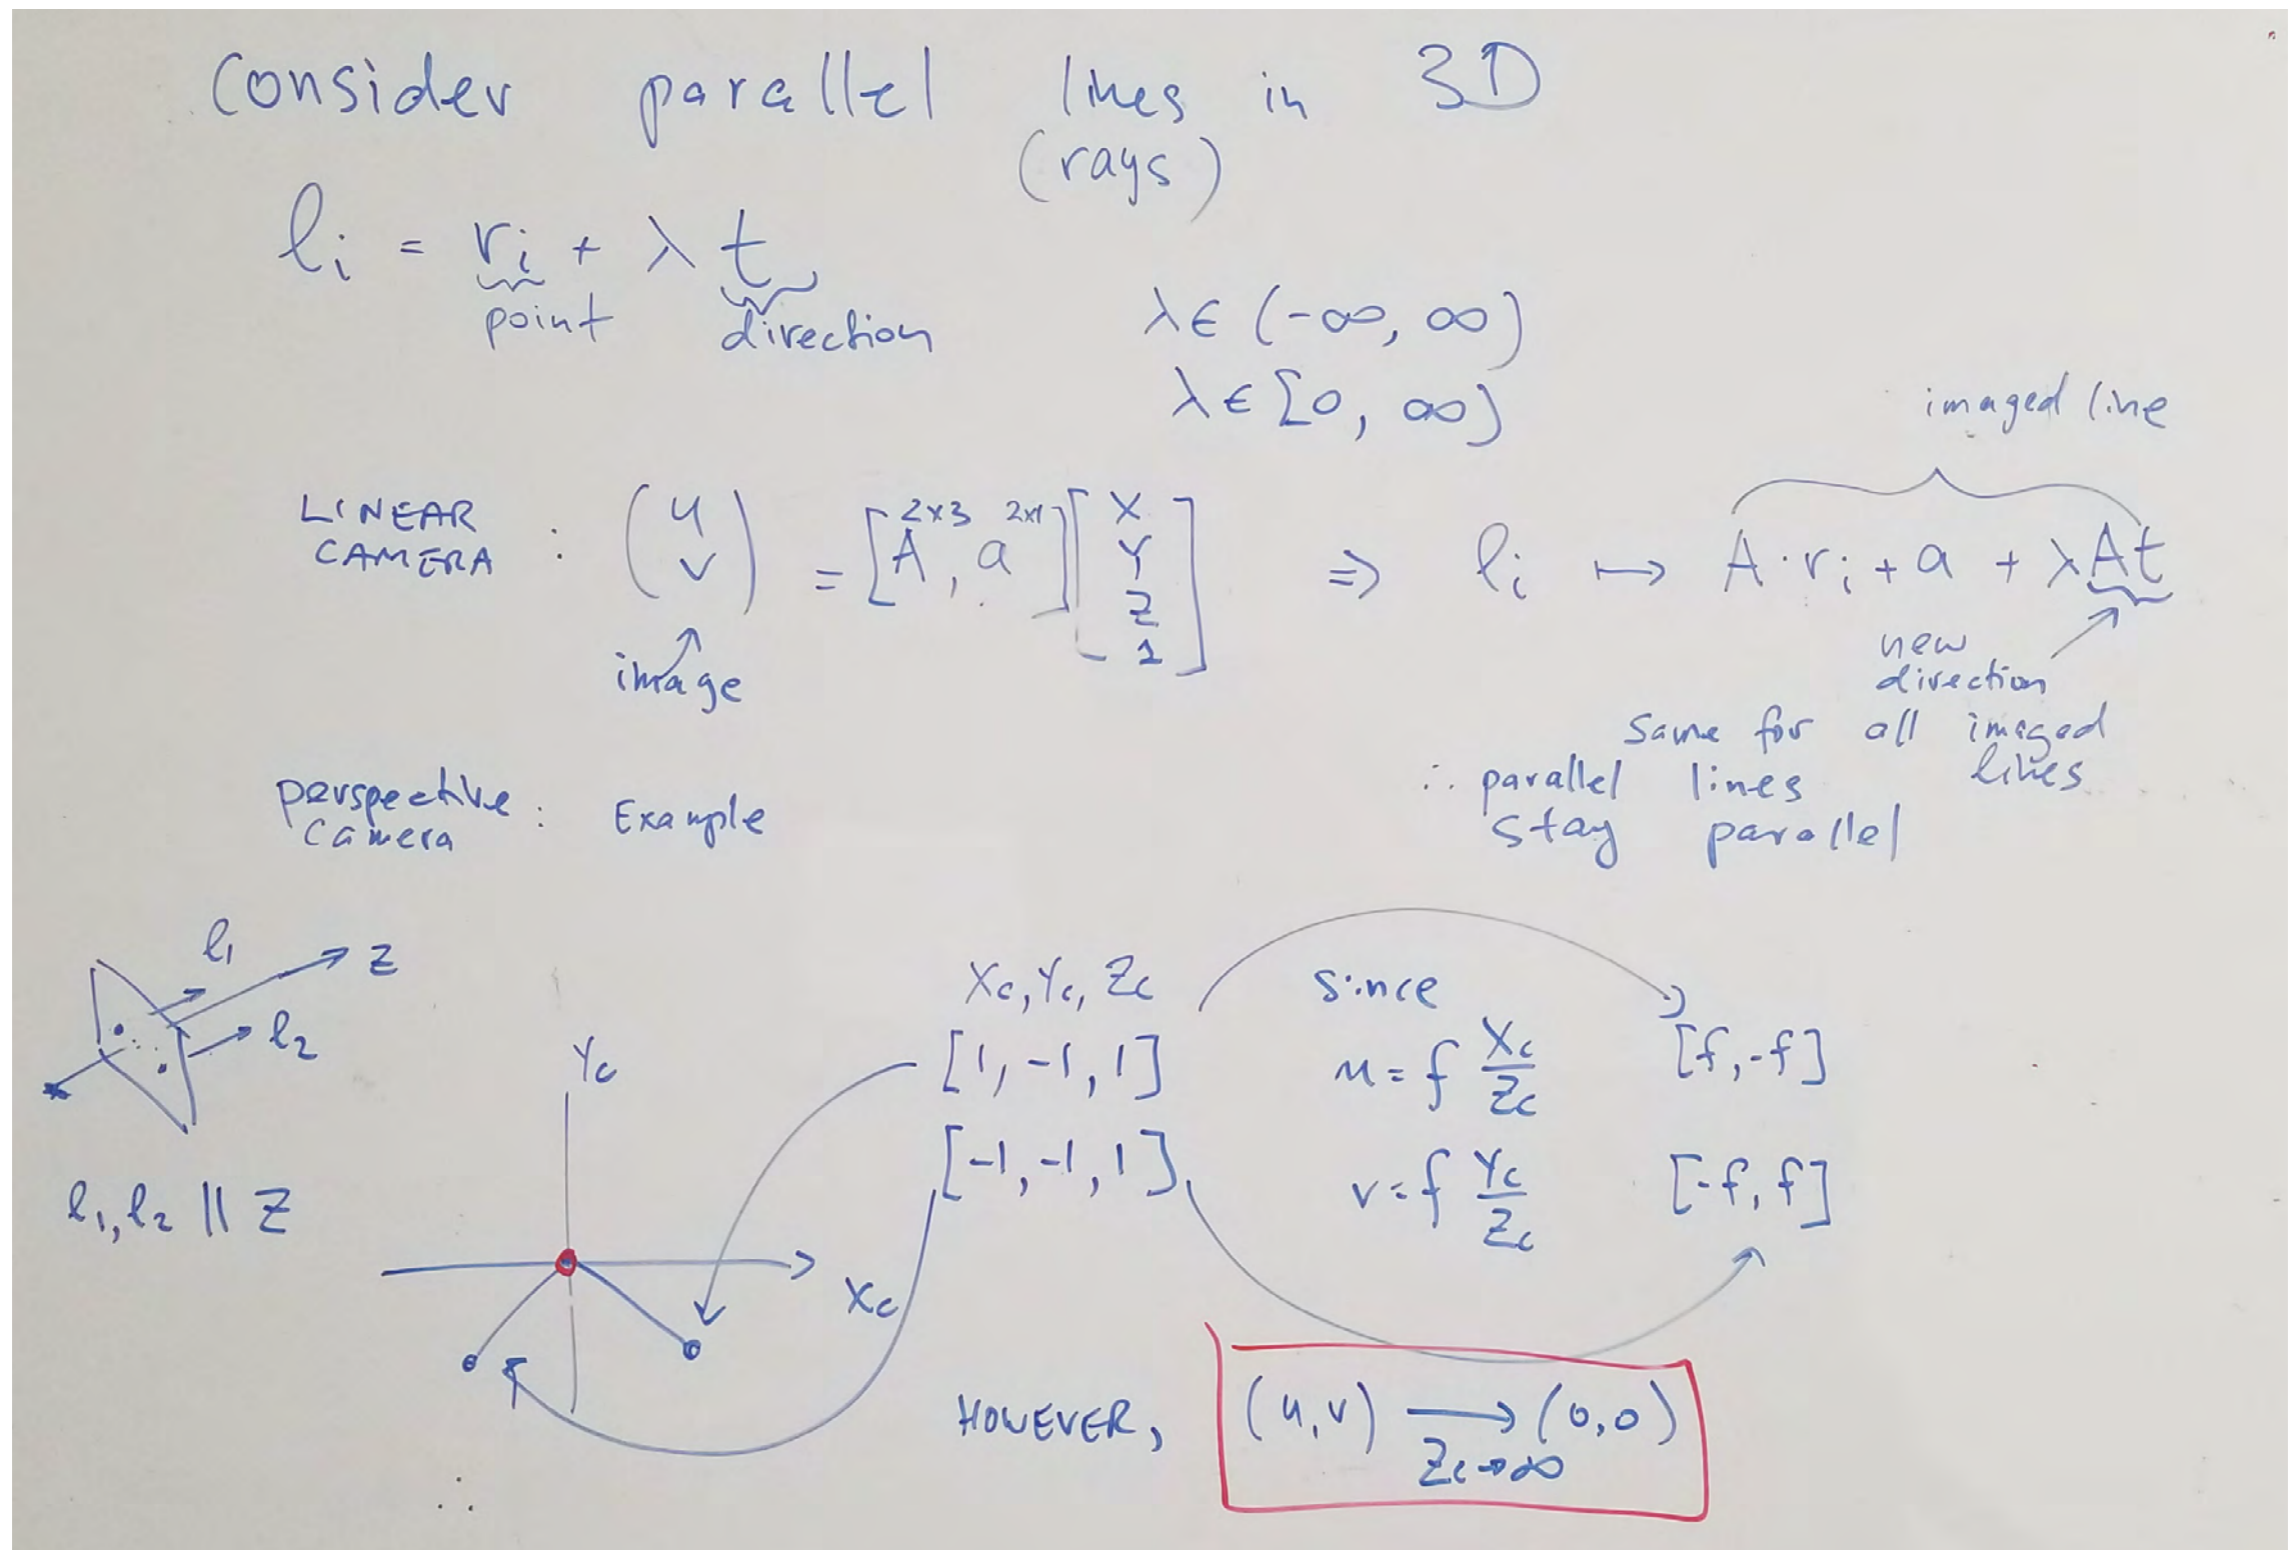 Consider parallel lines in 3D
(rays)
li = ri + λ t
point direction
λ ∈ (-∞, ∞)
λ ∈ [0, ∞)
imaged line
LINEAR CAMERA : (u v) = [A 2x3, a 2x1] [X Y Z 1] ⇒ li ↦ A·ri + a + λAt
image
new direction
same for all imaged lines
∴ parallel lines
stay parallel
perspective camera : Example
l1
Z
l2
l1, l2 || Z
Yc
Xc
Xc, Yc, Zc
[1, -1, 1]
[-1, -1, 1]
since
u = f Xc/Zc
v = f Yc/Zc
[f, -f]
[-f, f]
HOWEVER, (u,v) → (0,0)
Zc→∞
∴